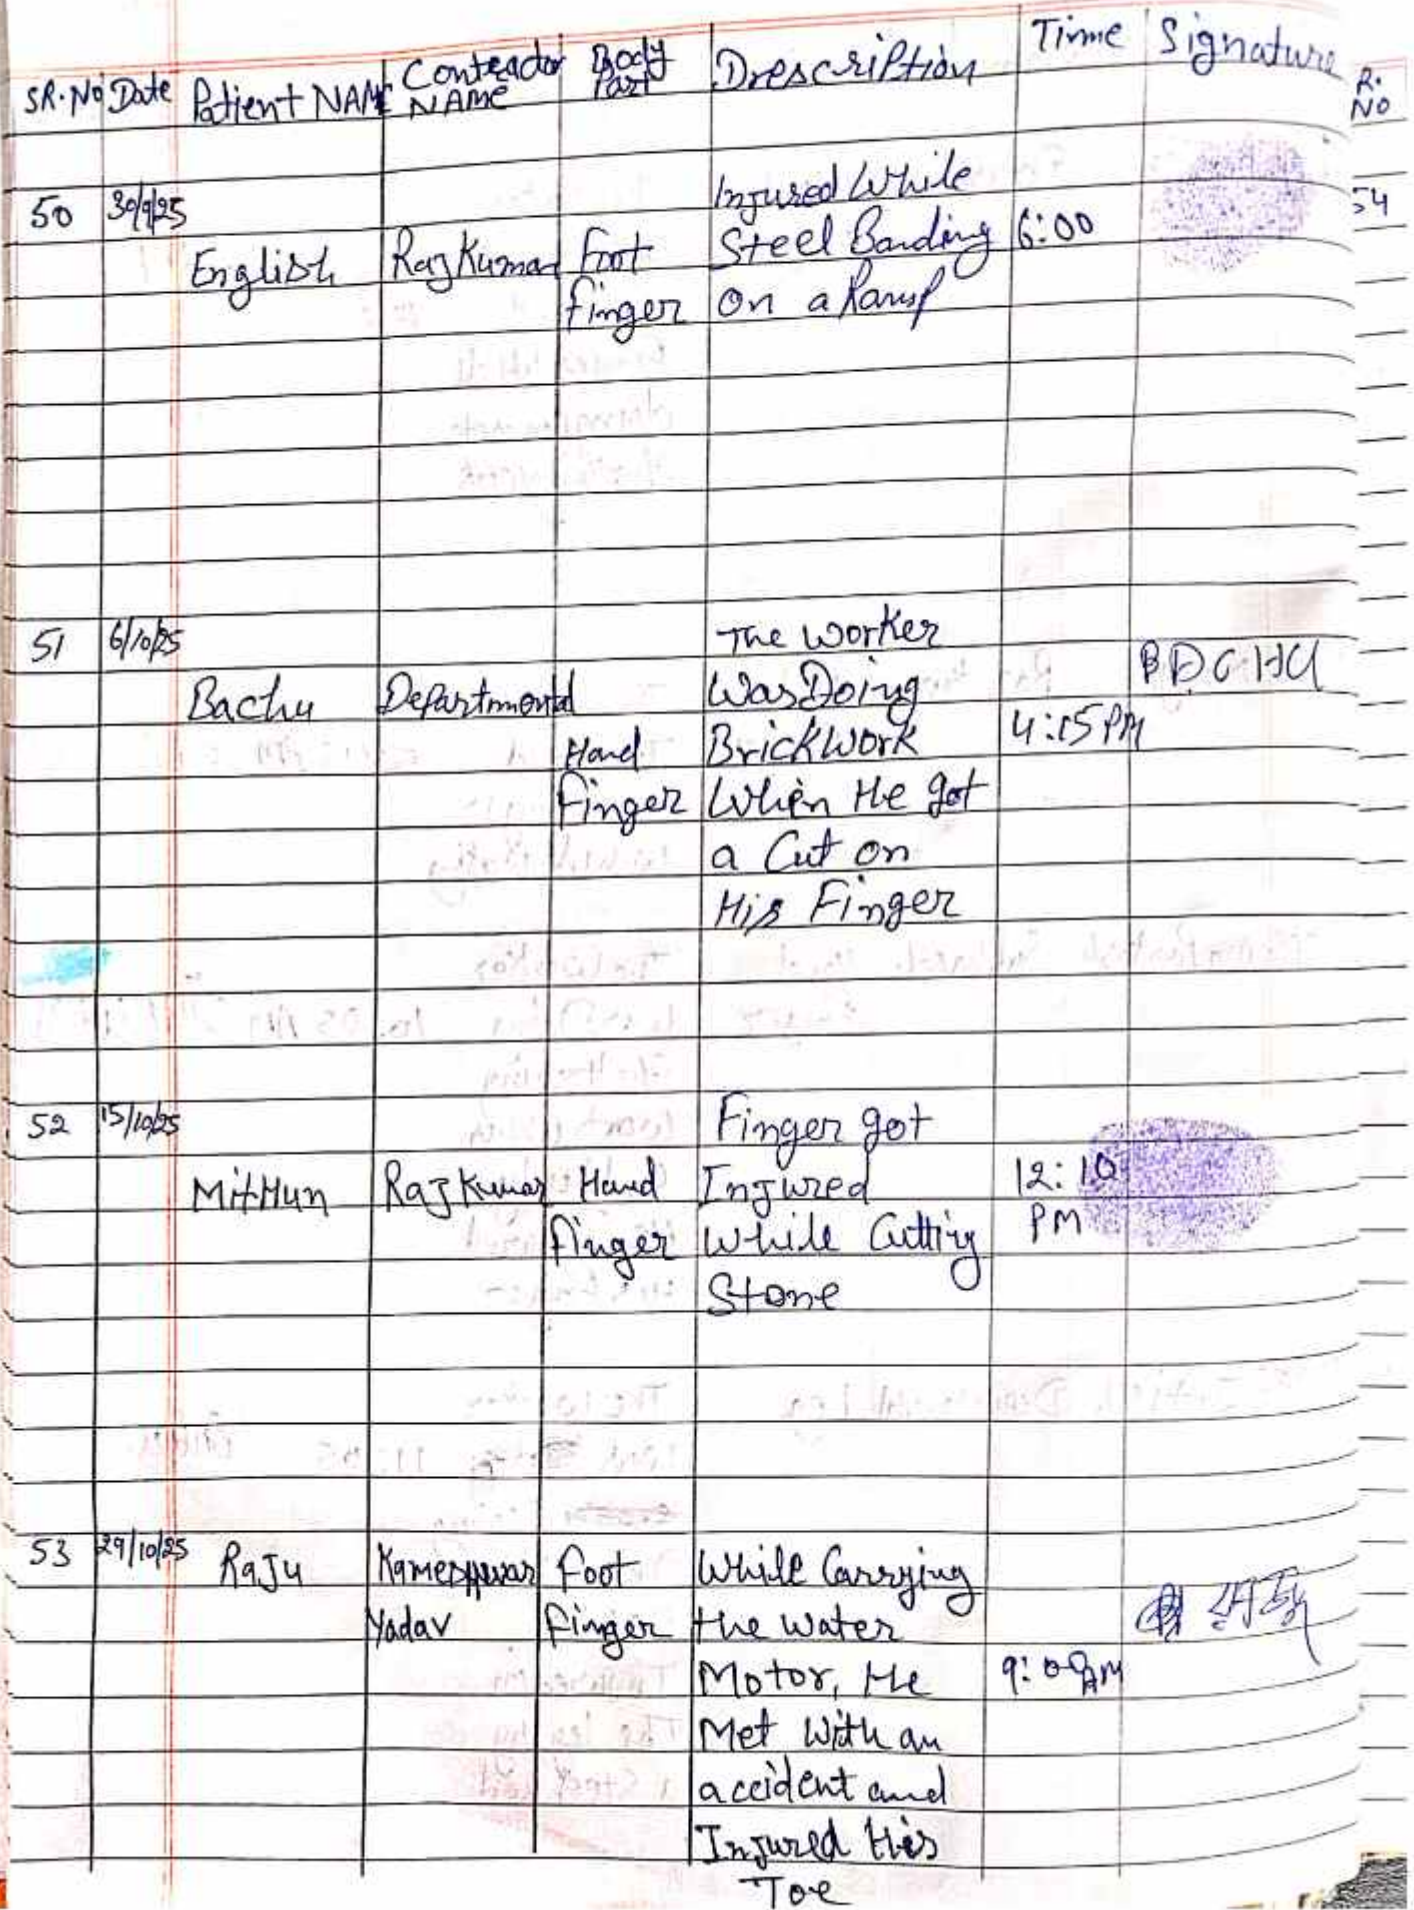 SR.No Date Patient NAME Contractor NAME Body Part Drescription Time Signature
R. NO
50 30/9/25 English Raj Kumar Foot finger Injured While 6:00
Steel Banding
On a Ramp
54
51 6/10/25 Bachu Departmental Hand Finger The Worker 4:15 PM
Was Doing
Brick Work
When He got
a Cut on
His Finger
52 15/10/25 MitHun Raj Kumar Hand finger Finger got 12:10 PM
Injured
While Cutting
Stone
53 29/10/25 Raju Kameshwar Yadav Foot finger While Carrying 9:00 AM
the Water
Motor, He
Met With an
accident and
Injured His
Toe